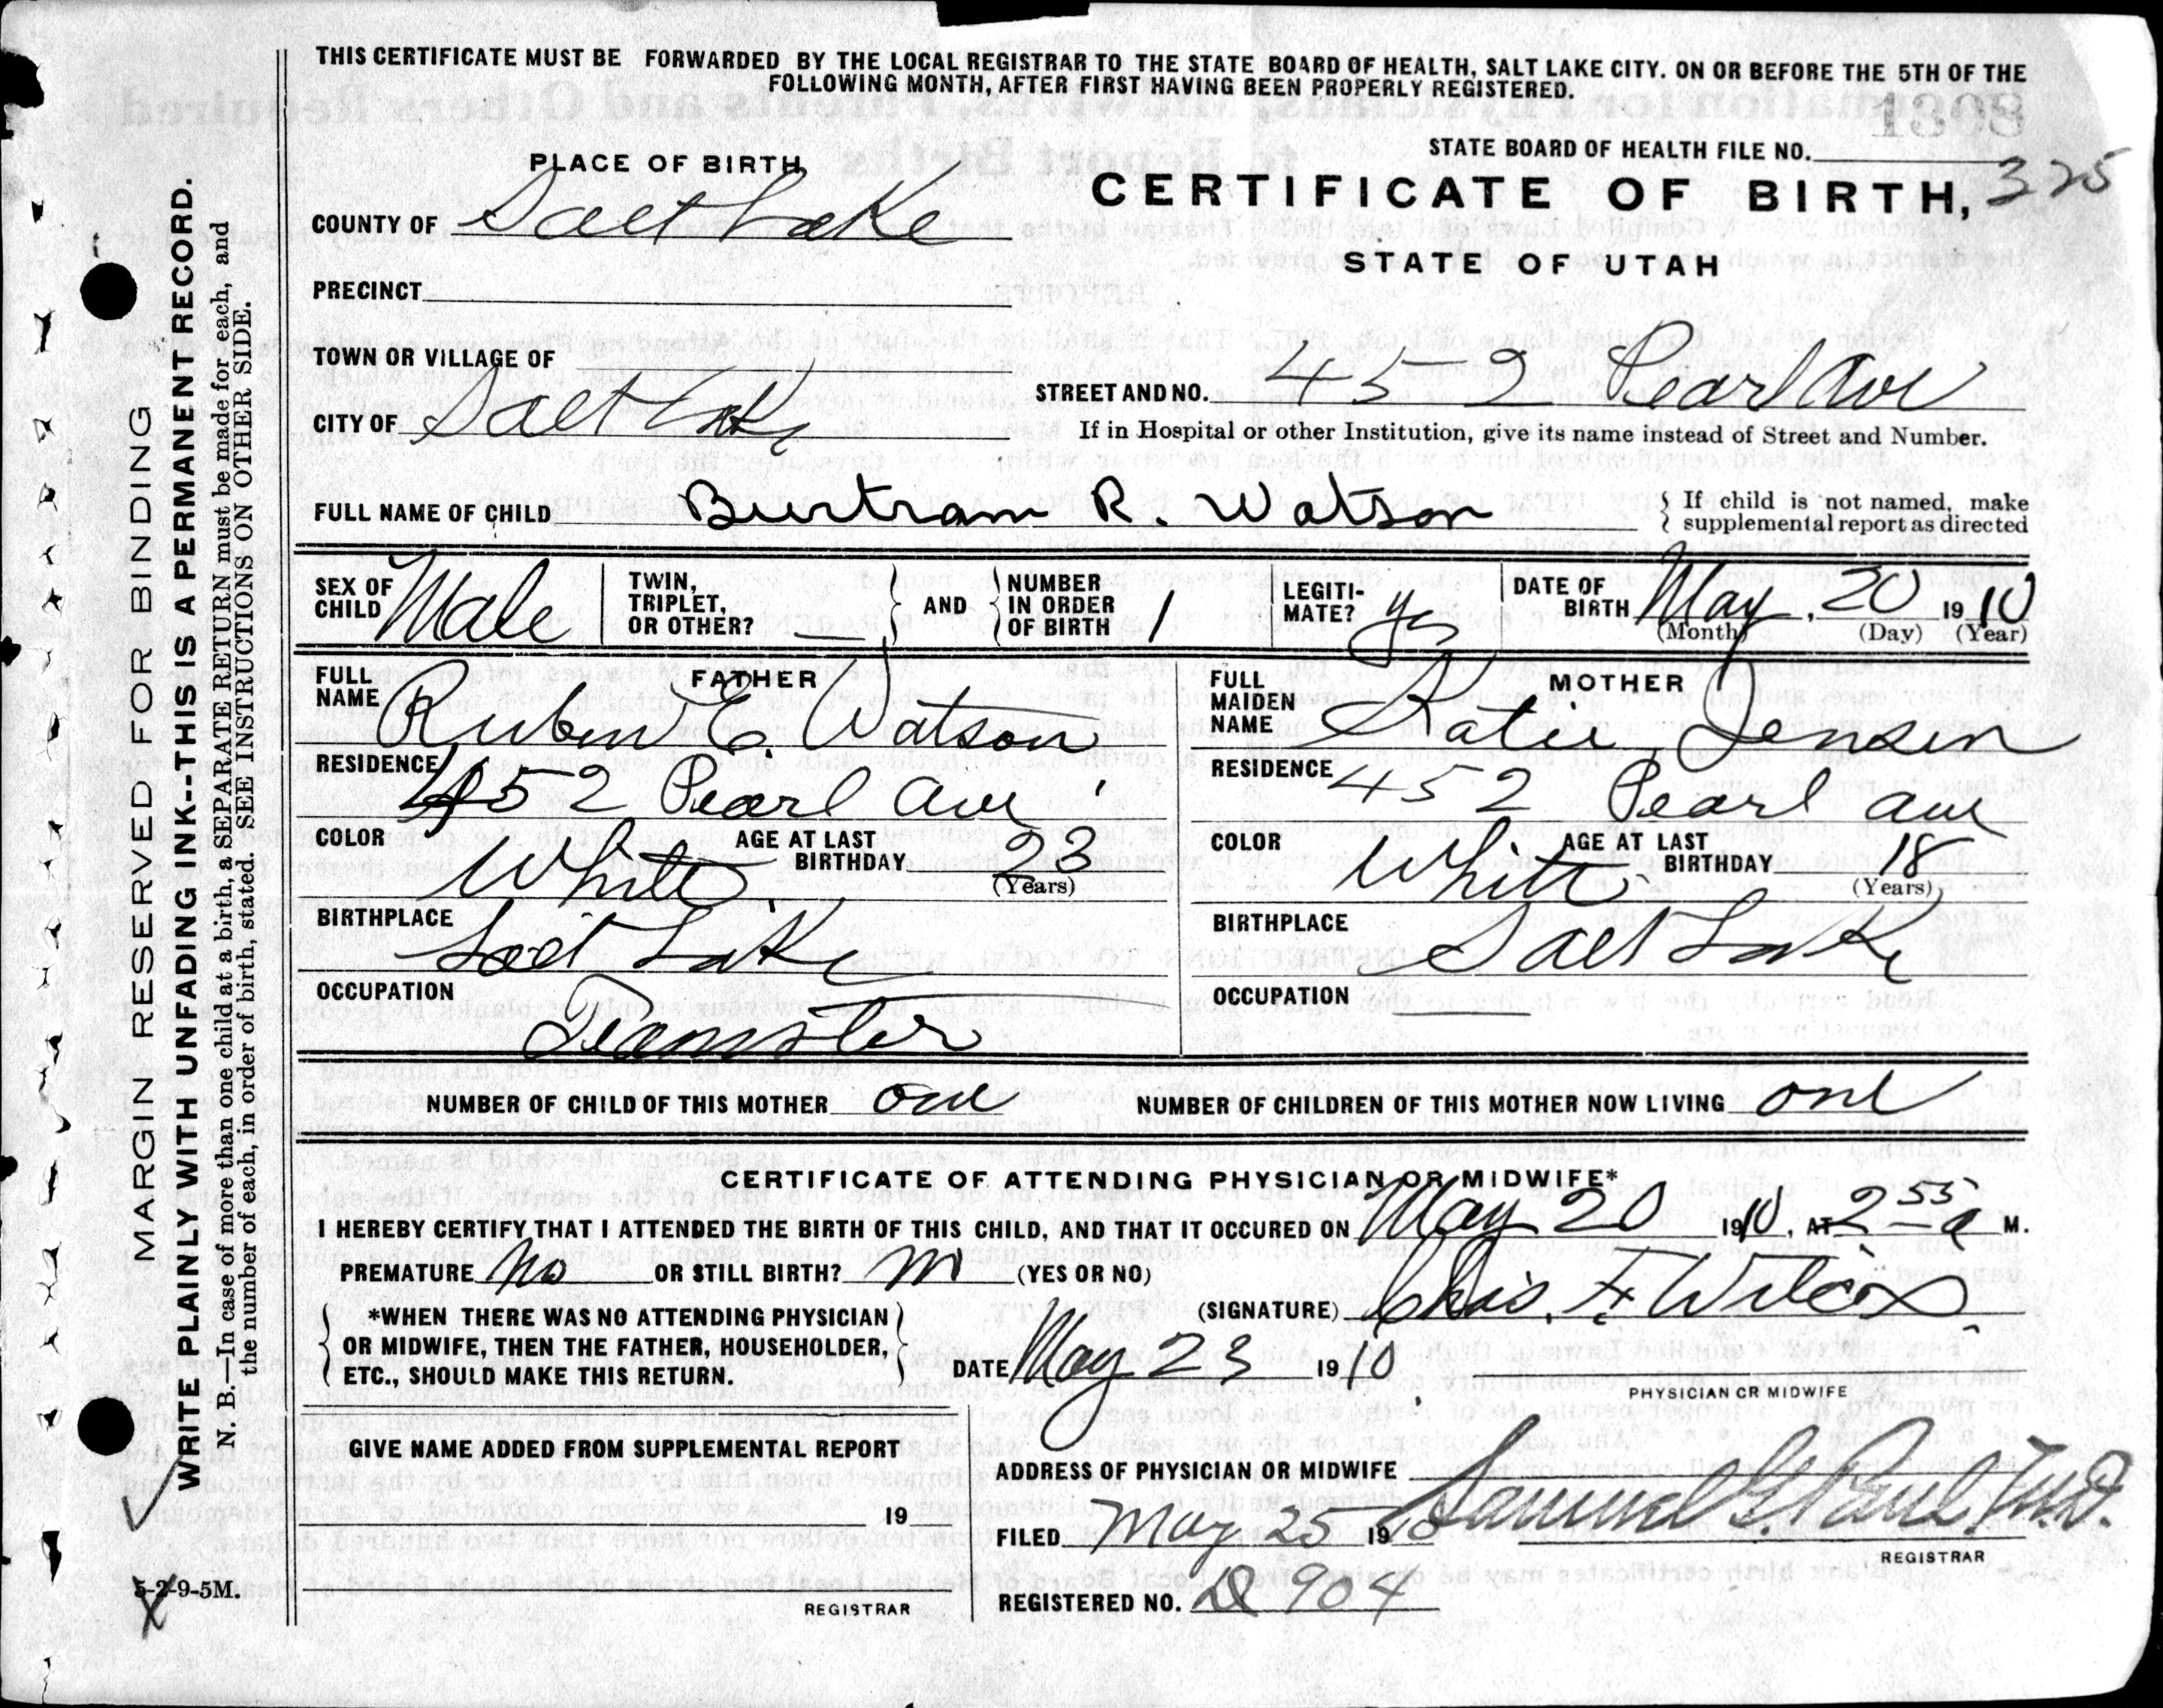 THIS CERTIFICATE MUST BE FORWARDED BY THE LOCAL REGISTRAR TO THE STATE BOARD OF HEALTH, SALT LAKE CITY. ON OR BEFORE THE 5TH OF THE
FOLLOWING MONTH, AFTER FIRST HAVING BEEN PROPERLY REGISTERED.
STATE BOARD OF HEALTH FILE NO.
325
CERTIFICATE OF BIRTH,
STATE OF UTAH
PLACE OF BIRTH
COUNTY OF Salt Lake
PRECINCT
TOWN OR VILLAGE OF
CITY OF Salt Lake
STREET AND NO. 452 Pearl Ave
If in Hospital or other Institution, give its name instead of Street and Number.
FULL NAME OF CHILD Burtram R. Watson
If child is not named, make
supplemental report as directed
SEX OF CHILD Male
TWIN, TRIPLET, OR OTHER? —
AND
NUMBER IN ORDER OF BIRTH 1
LEGITI-MATE? yes
DATE OF BIRTH May, 20 1910
(Month) (Day) (Year)
FATHER
FULL NAME Ruben E. Watson
RESIDENCE 452 Pearl Ave
COLOR White
AGE AT LAST BIRTHDAY 23
(Years)
BIRTHPLACE Salt Lake
OCCUPATION Teamster
MOTHER
FULL MAIDEN NAME Katie Jensen
RESIDENCE 452 Pearl Ave
COLOR White
AGE AT LAST BIRTHDAY 18
(Years)
BIRTHPLACE Salt Lake
OCCUPATION —
NUMBER OF CHILD OF THIS MOTHER one
NUMBER OF CHILDREN OF THIS MOTHER NOW LIVING one
CERTIFICATE OF ATTENDING PHYSICIAN OR MIDWIFE*
I HEREBY CERTIFY THAT I ATTENDED THE BIRTH OF THIS CHILD, AND THAT IT OCCURED ON May 20 1910, AT 2 55 a M.
PREMATURE No OR STILL BIRTH? no (YES OR NO)
*WHEN THERE WAS NO ATTENDING PHYSICIAN
OR MIDWIFE, THEN THE FATHER, HOUSEHOLDER,
ETC., SHOULD MAKE THIS RETURN.
(SIGNATURE) Chas. F. Wilcox
DATE May 23 1910
PHYSICIAN OR MIDWIFE
GIVE NAME ADDED FROM SUPPLEMENTAL REPORT
19
REGISTRAR
ADDRESS OF PHYSICIAN OR MIDWIFE
FILED May 25 1910 Samuel G. Paul, M.D.
REGISTRAR
REGISTERED NO. 904
MARGIN RESERVED FOR BINDING
WRITE PLAINLY WITH UNFADING INK--THIS IS A PERMANENT RECORD.
N. B.—In case of more than one child at a birth, a SEPARATE RETURN must be made for each, and
the number of each, in order of birth, stated. SEE INSTRUCTIONS ON OTHER SIDE.
5-2-9-5M.